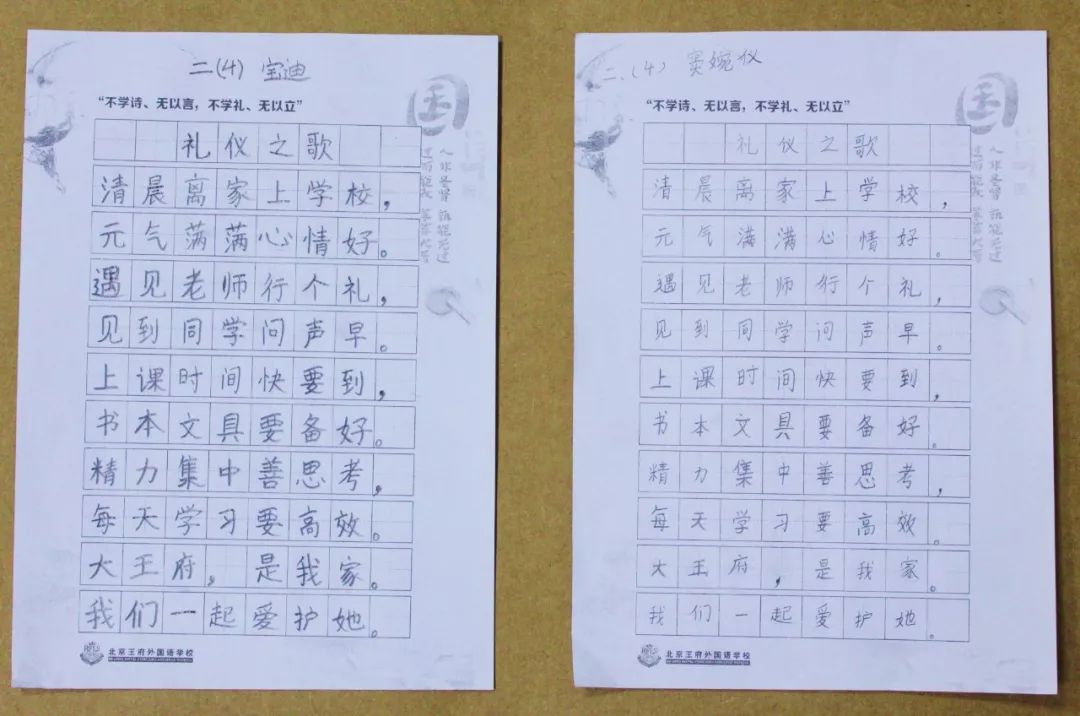 二(4) 宝迪
“不学诗、无以言，不学礼、无以立”
礼仪之歌
清晨离家上学校，
元气满满心情好。
遇见老师行个礼，
见到同学问声早。
上课时间快要到，
书本文具要备好。
精力集中善思考，
每天学习要高效。
大王府，是我家。
我们一起爱护她。
北京王府外国语学校
二、(4) 窦婉仪
“不学诗、无以言，不学礼、无以立”
礼仪之歌
清晨离家上学校，
元气满满心情好。
遇见老师行个礼，
见到同学问声早。
上课时间快要到，
书本文具要备好。
精力集中善思考，
每天学习要高效。
大王府，是我家。
我们一起爱护她。
北京王府外国语学校